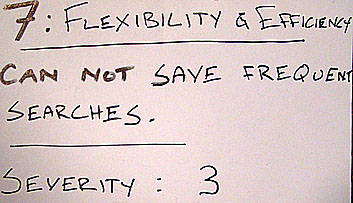 7: FLEXIBILITY & EFFICIENCY
CAN NOT SAVE FREQUENT
SEARCHES.
SEVERITY : 3